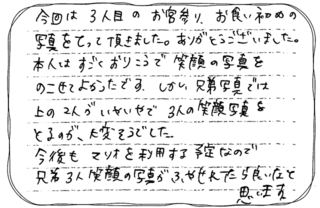 今回は3人目のお宮参り、お食い初めの
写真をとって頂きました。ありがとうございました。
本人はすごくおりこうで笑顔の写真を
のこせてよかったです。しかし、兄弟写真では
上の2人がいやいやで3人の笑顔写真を
とるのが、大変そうでした。
今後もマリオを利用する予定なので
兄弟3人笑顔の写真がふやせれたら良いなと
思います